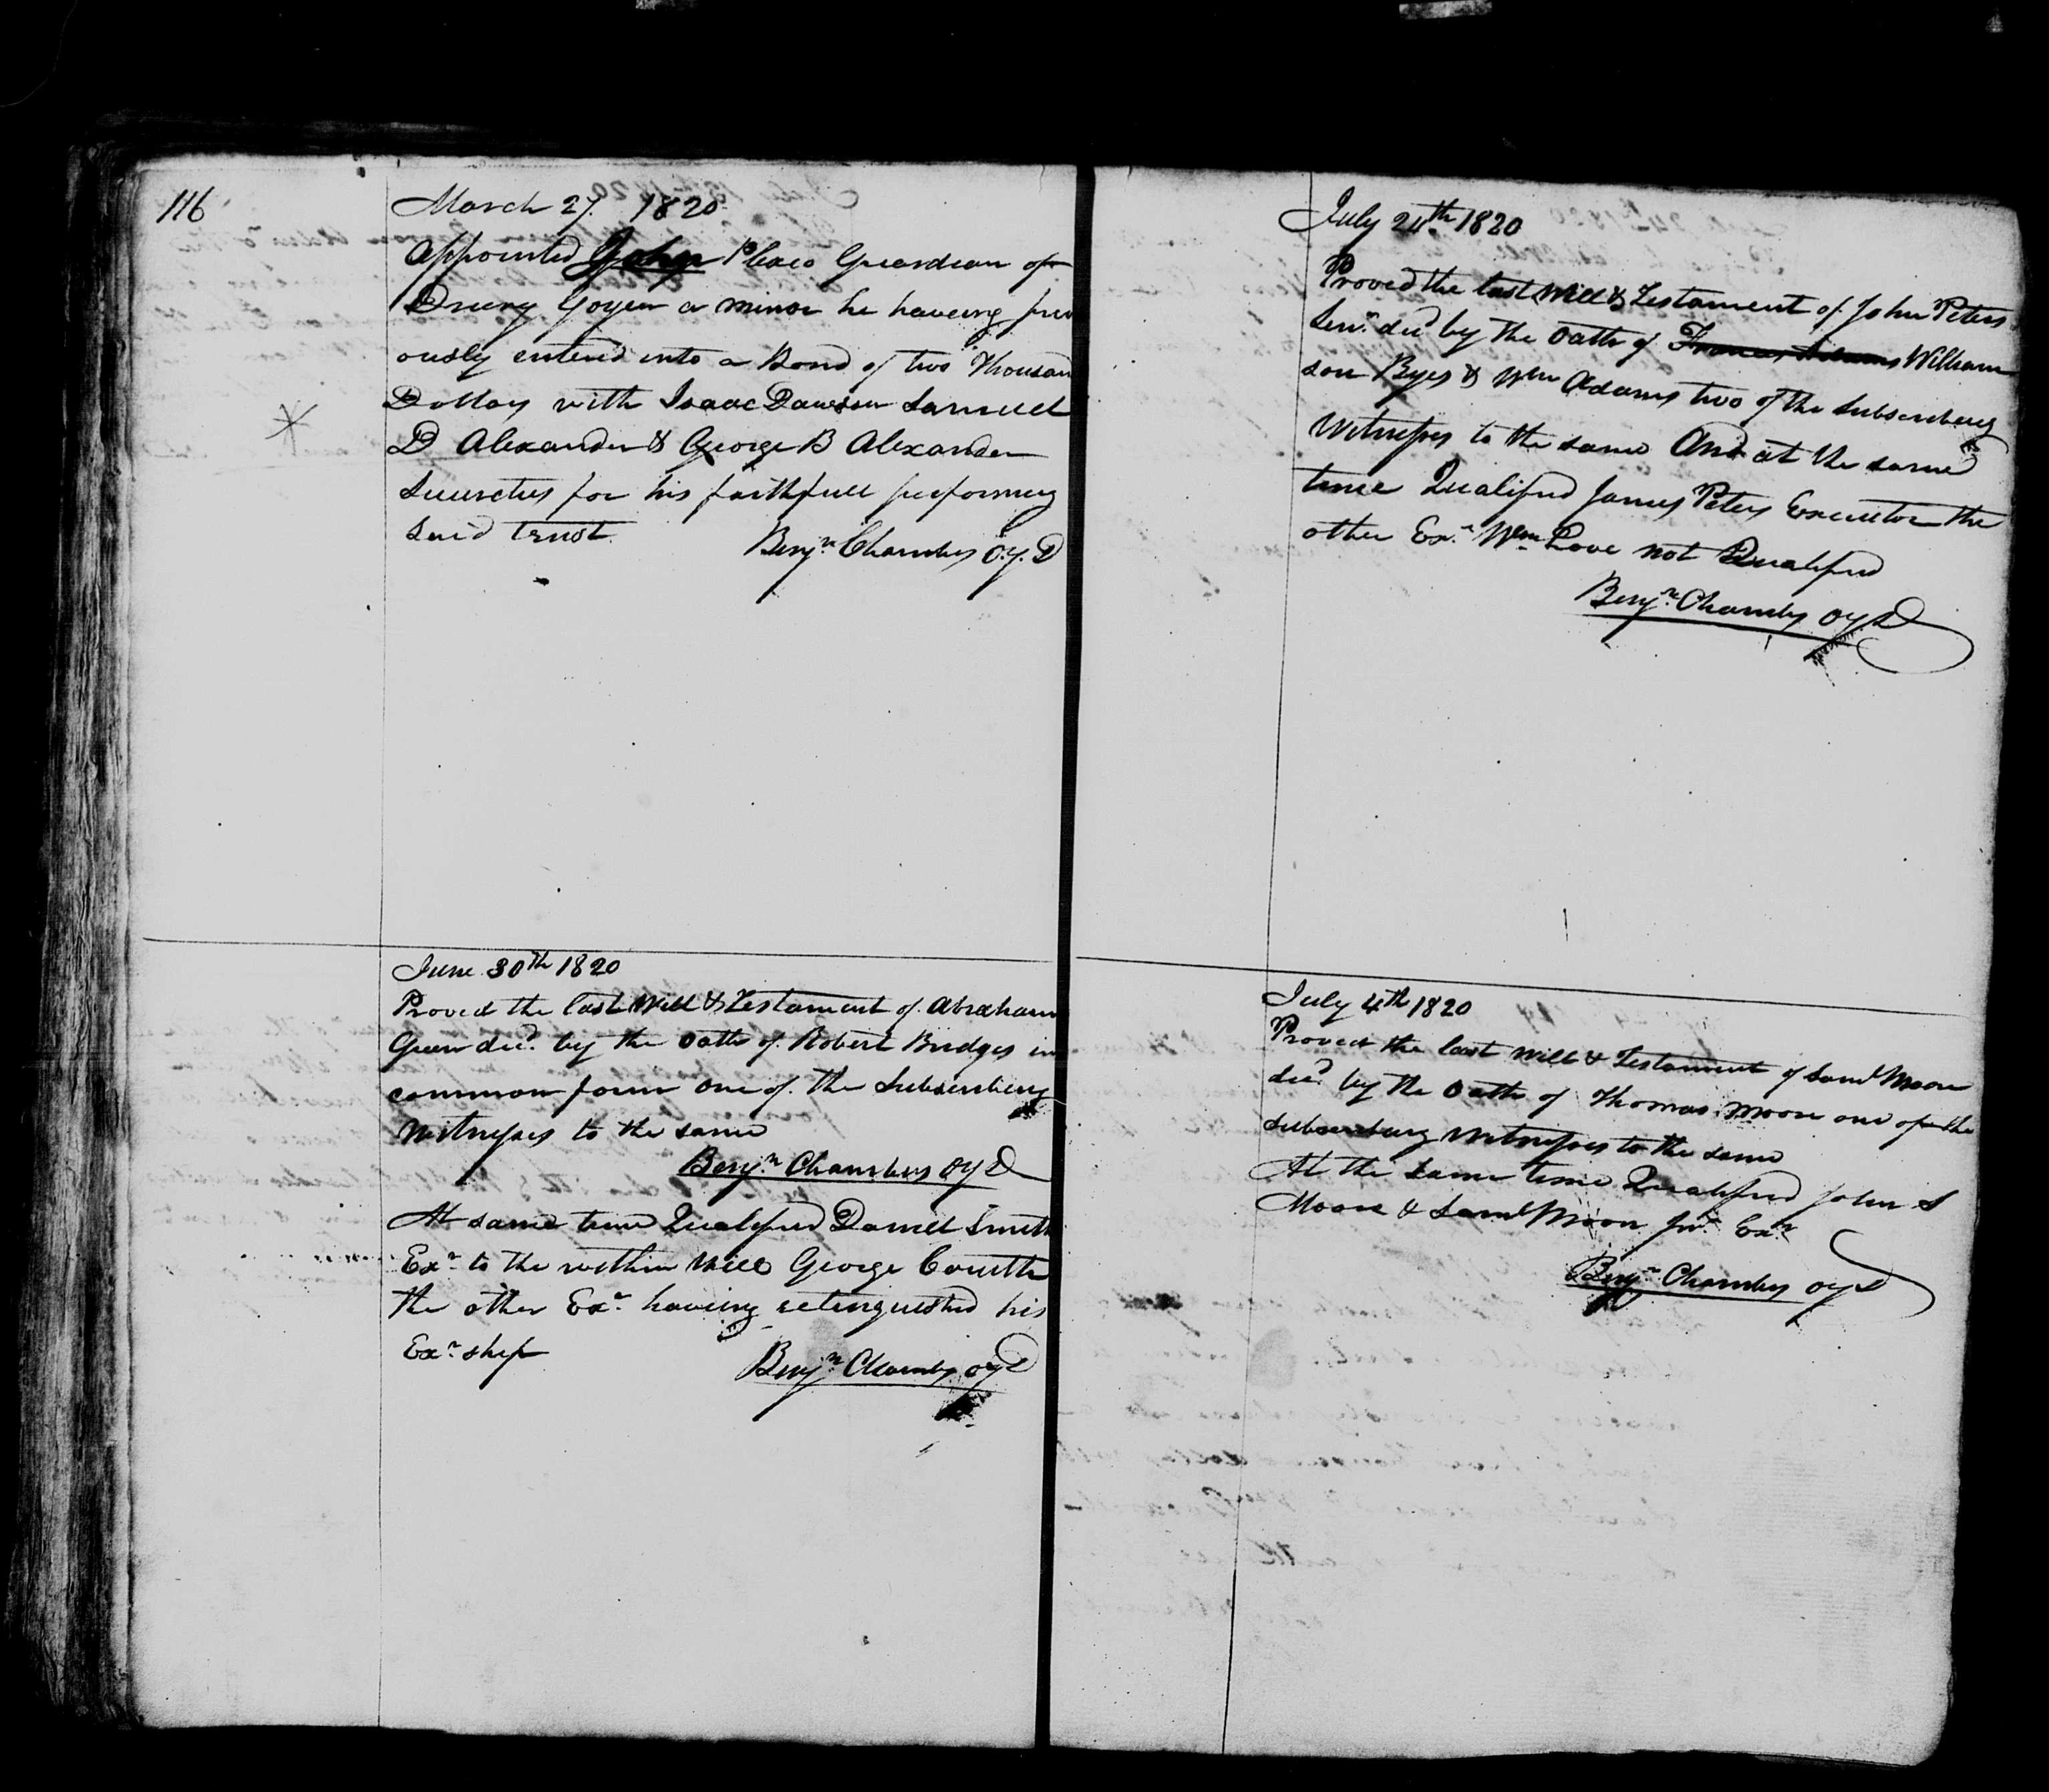 116
March 27. 1820
Appointed John Plaxco Guardian of
Drury Goyen a minor he haveing previ
ously entered into a Bond of two Thousand
Dollars with Isaac Dawson Samuel
D Alexander & George B Alexander
Securities for his faithfull performing
Said trust.
Benjn. Chambers O.Y.D
June 30th 1820
Proved the last Will & Testament of Abraham
Green decd. by the oath of Robert Bridges in
common form one of the Subscribing
Witnesses to the same
Benjn. Chambers OYD
At same time Qualifyed Daniel Smith
Exr. to the within Will George
the other Exr. haveing relinquished his
Exr. ship
Benjn. Chambers OYD
July 24th 1820
Proved the last Will & Testament of John Peters
Senr. decd by the oath of Francis Adams William
son Byers & Wm Adams two of the Subscribing
Witnesses to the same And at the same
time Qualifyed James Peters Executor the
other Exr. Wm Love not Qualifyed
Benjn. Chambers OYD
July 4th 1820
Proved the last Will & Testament of Saml Moore
decd by the Oath of Thomas Moore one of the
Subscribing Witnesses to the same
At the same time Qualifyed John S
Moore & Saml Moore Junr. Exrs
Benjn. Chambers OYD